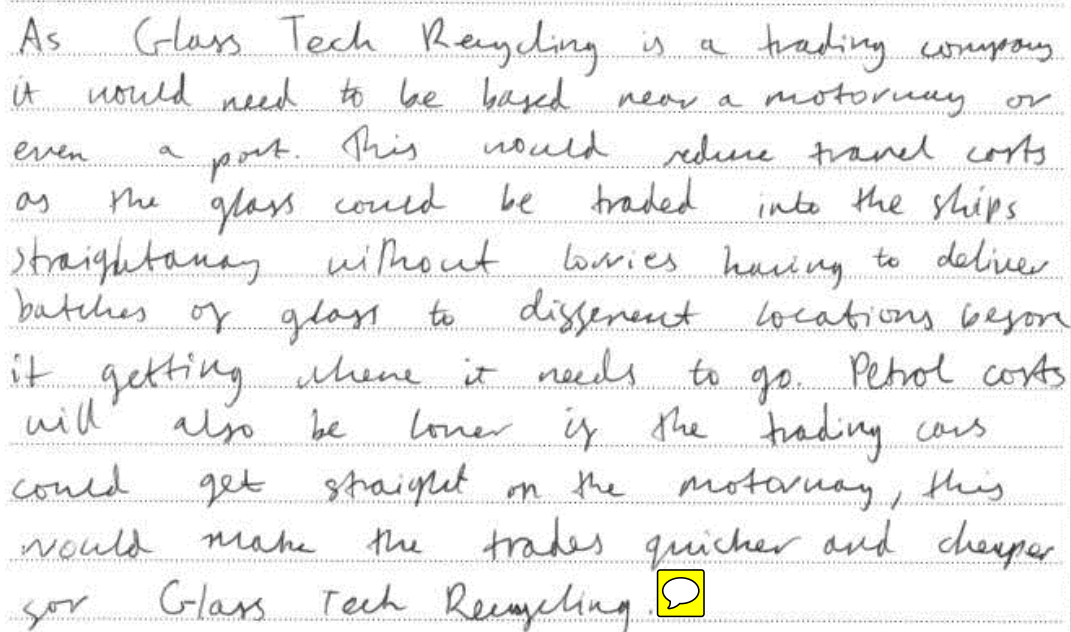 As Glass Tech Recycling is a trading company
it would need to be based near a motorway or
even a port. This would reduce travel costs
as the glass could be traded into the ships
straightaway without lorries having to deliver
batches of glass to different locations before
it getting where it needs to go. Petrol costs
will also be lower if the trading cars
could get straight on the motorway, this
would make the trades quicker and cheaper
for Glass Tech Recycling.